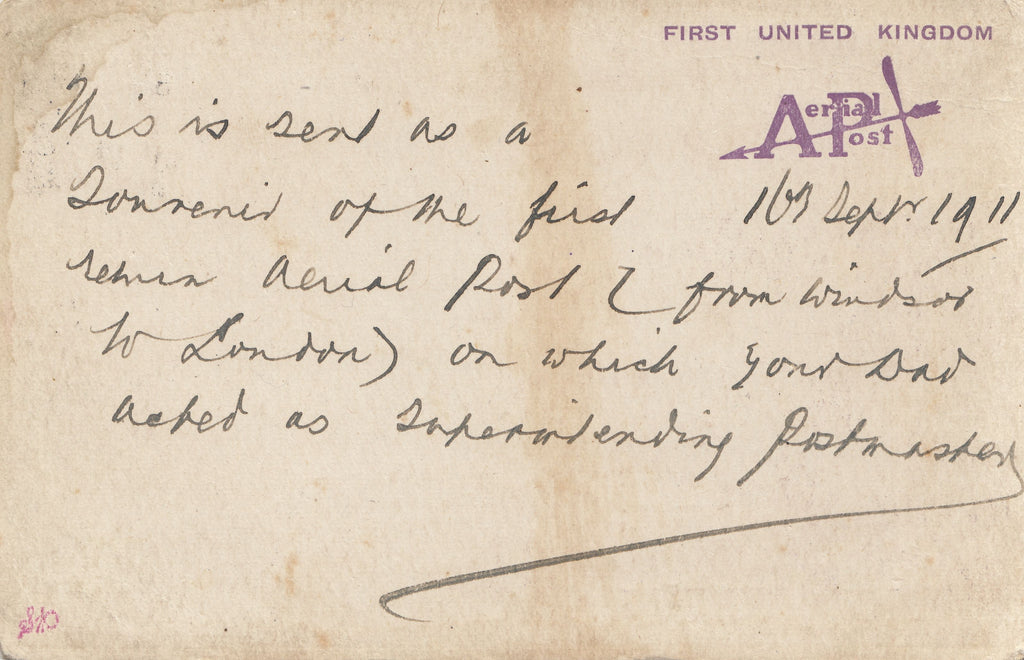 FIRST UNITED KINGDOM
Aerial Post
16th Septr 1911
This is sent as a
Souvenir of the first
return Aerial Post (from Windsor
to London) on which your Dad
acted as Superintending Postmaster